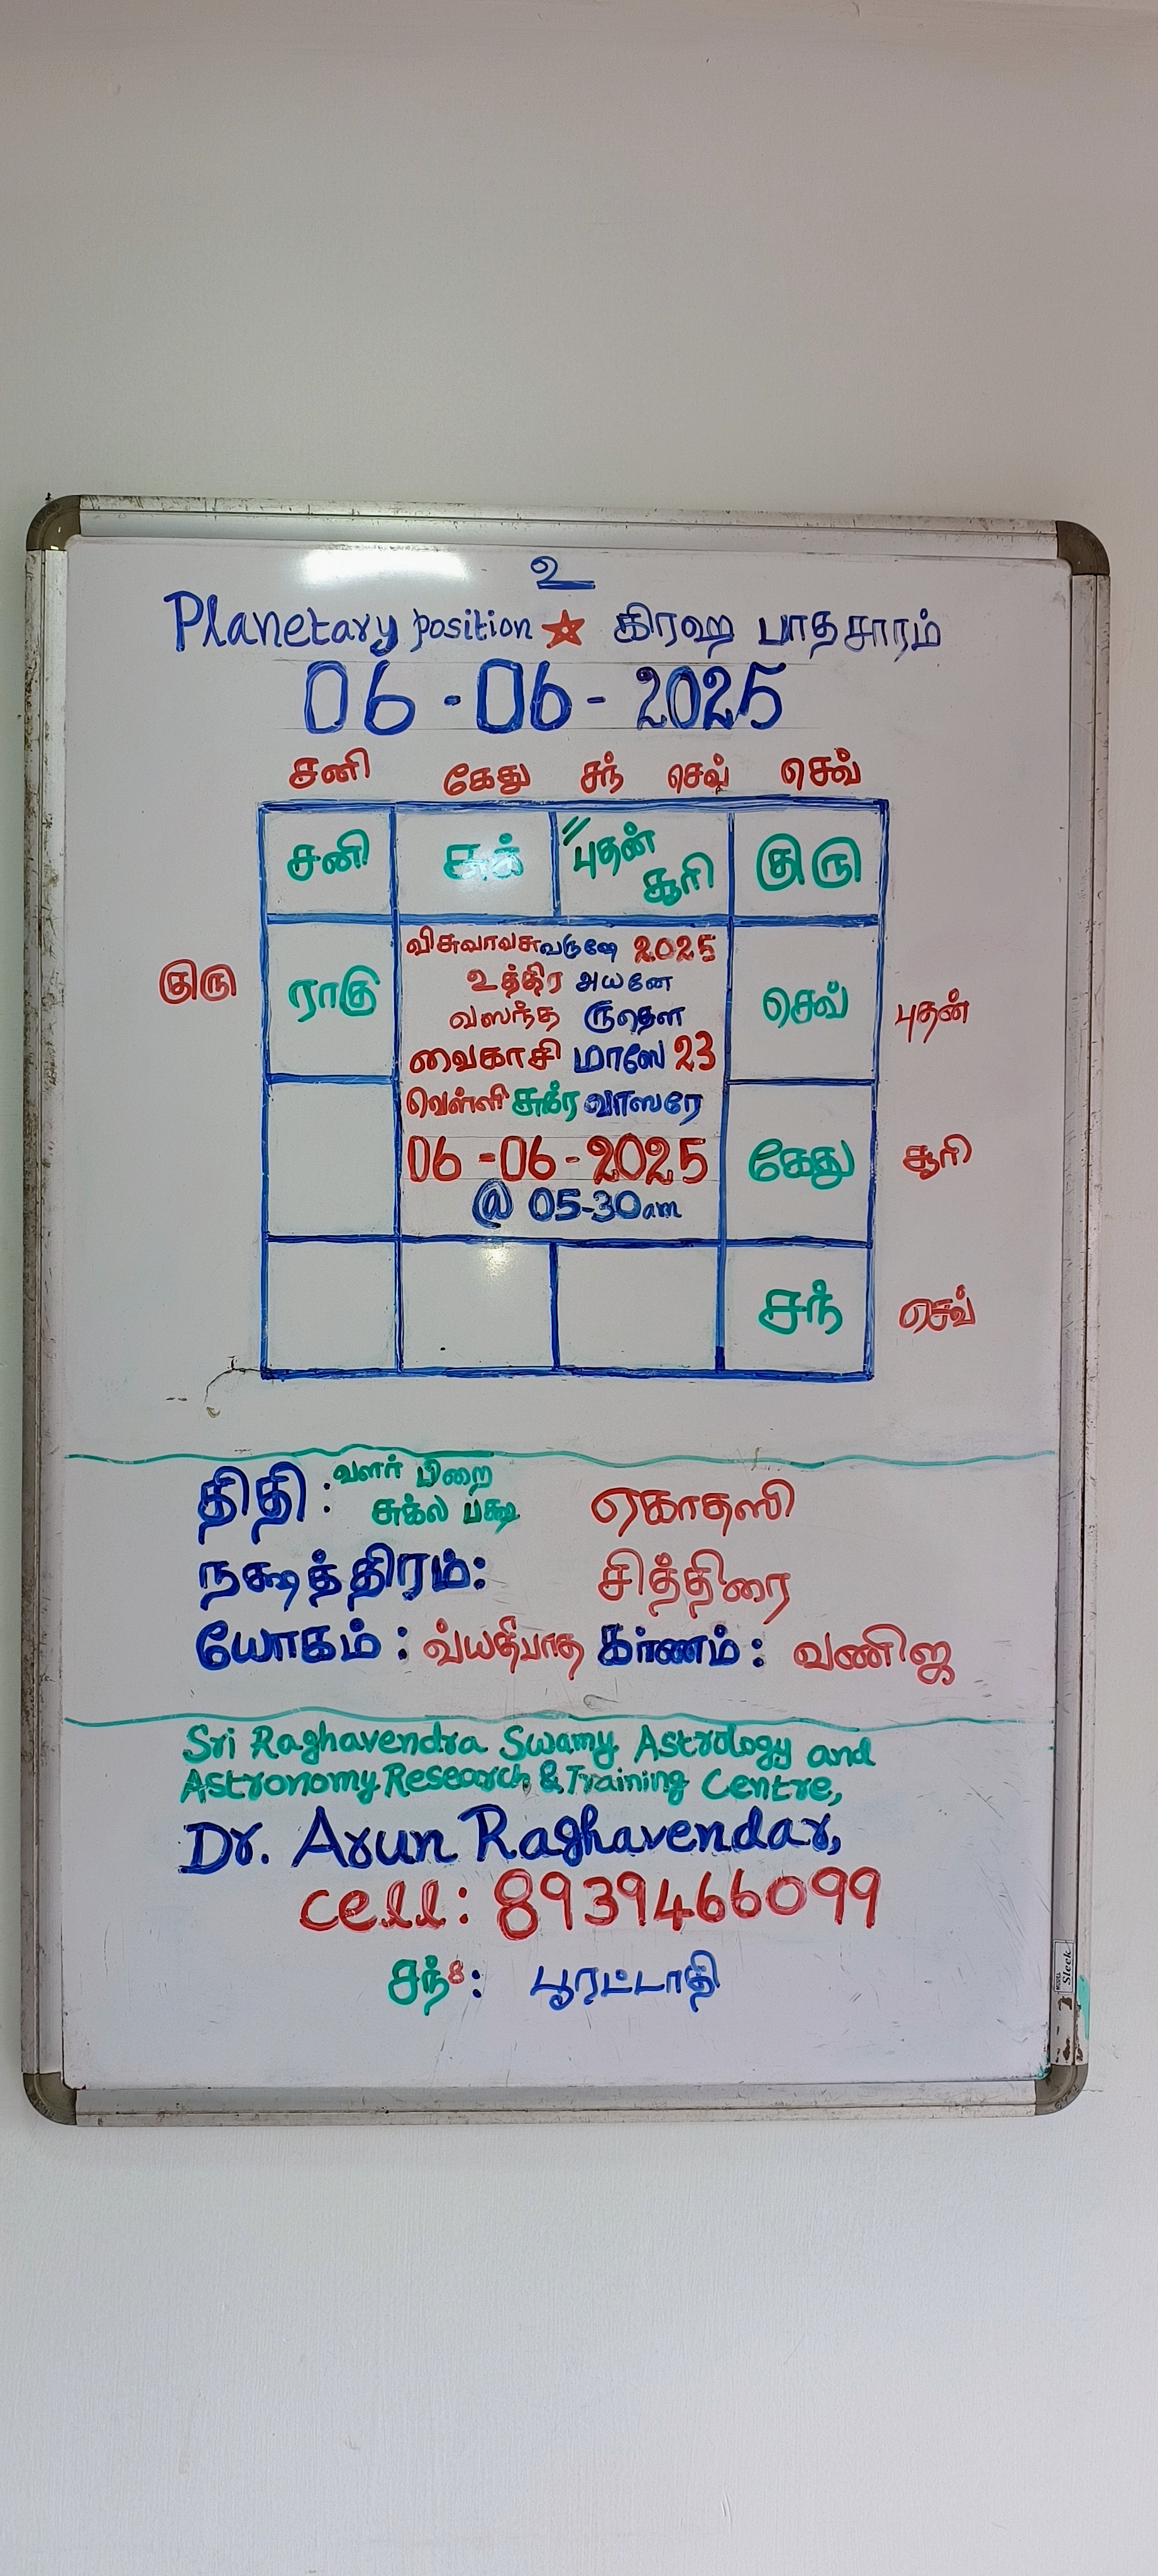 உ
Planetary position கிரஹ பாதசாரம்
06-06-2025
சனி கேது சந் செவ் செவ்
சனி சுக் புதன் சூரி குரு
விசுவாவசு வருஷே 2025
உத்திர அயனே
குரு ராகு வஸந்த ருதௌ செவ் புதன்
வைகாசி மாஸே 23
வெள்ளி சுக்ர வாஸரே
06-06-2025 கேது சூரி
@ 05-30am
சந் செவ்
திதி : வளர் பிறை
சுக்ல பக்ஷ ஏகாதஸி
நக்ஷத்திரம்: சித்திரை
யோகம் : வ்யதீபாத கர்ணம் : வணிஜ
Sri Raghavendra Swamy Astrology and
Astronomy Research & Training Centre,
Dr. Arun Raghavendar,
cell: 8939466099
சந் 8 : பூரட்டாதி
Sleek